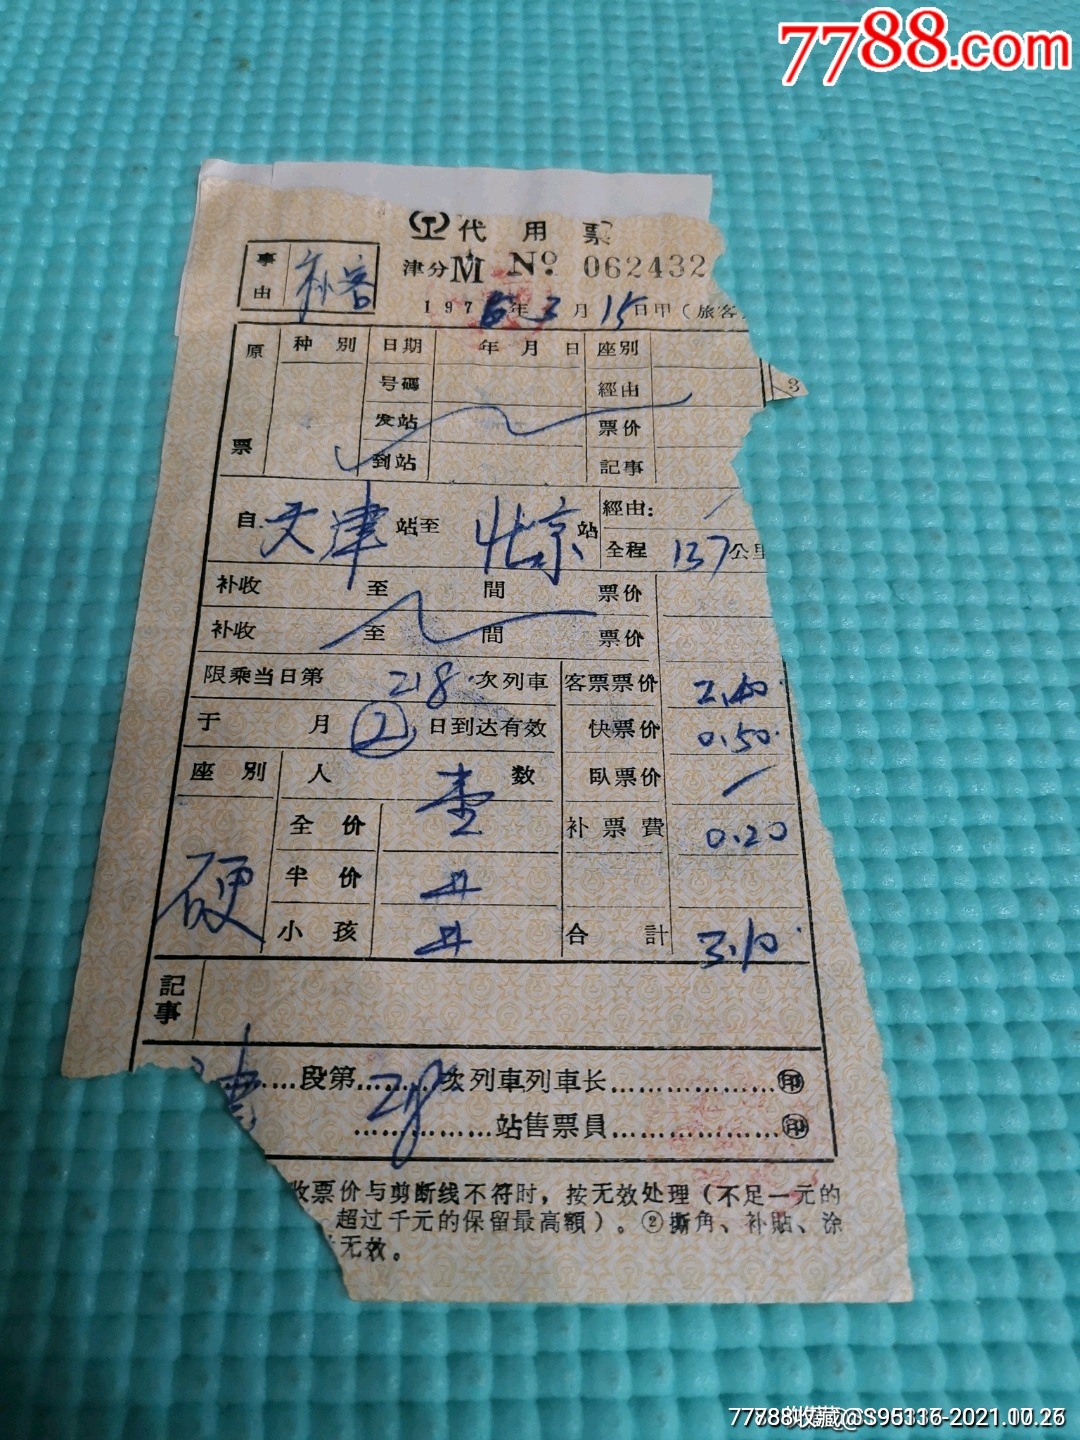 7788.com
代用票
事由 补客
津分M No. 062432
1975年3月15日甲(旅客
原票 种別 日期 年月日 座別
号碼 經由
发站 票价
到站 記事
3
自天津站至北京站 經由: /
全程 137公里
补收 至 間 票价
补收 至 間 票价
限乘当日第218次列車 客票票价 2.40
于 月②日到达有效 快票价 0.50
座別 人数 臥票价 /
全价 壹 补票費 0.20
半价
硬
小孩 合計 3.10
記事
津……段第218次列車列車长……印
……站售票員……印
收票价与剪断线不符时,按无效处理(不足一元的
超过千元的保留最高額)。②撕角、补貼、涂
无效。